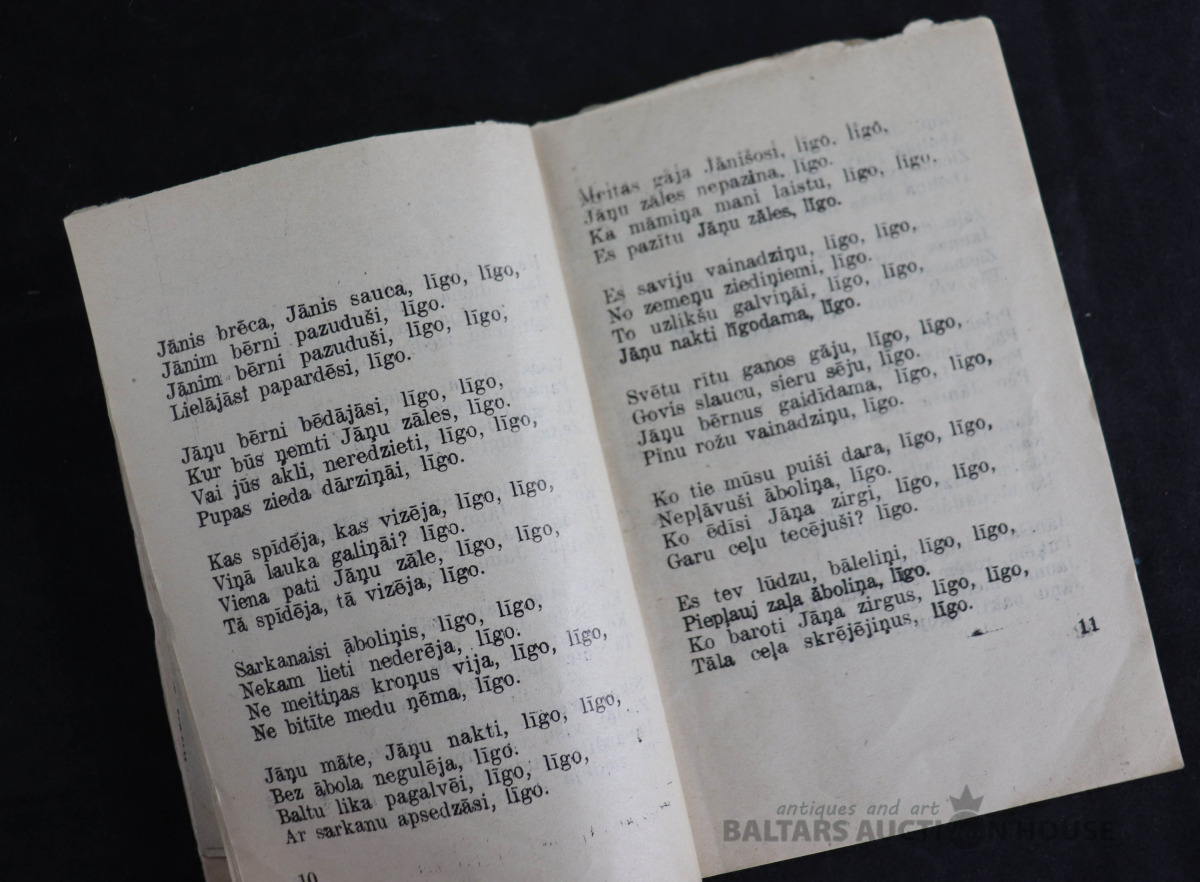 Jānis brēca, Jānis sauca, līgo, līgo,
Jānim bērni pazuduši, līgo.
Jānim bērni pazuduši, līgo, līgo,
Lielājāsi papardēsi, līgo.
Jāņu bērni bēdājāsi, līgo, līgo,
Kur būs ņemti Jāņu zāles, līgo.
Vai jūs akli, neredzieti, līgo, līgo,
Pupas zieda dārziņāi, līgo.
Kas spīdēja, kas vizēja, līgo, līgo,
Viņā lauka galiņāi? līgo.
Viena pati Jāņu zāle, līgo, līgo,
Tā spīdēja, tā vizēja, līgo.
Sarkanaisi āboliņis, līgo, līgo,
Nekam lieti nederēja, līgo.
Ne meitiņas kroņus vija, līgo, līgo,
Ne bitīte medu ņēma, līgo.
Jāņu māte, Jāņu nakti, līgo, līgo,
Bez ābola negulēja, līgo.
Baltu lika pagalvēi, līgo, līgo,
Ar sarkanu apsedzāsi, līgo.
10
Meitas gāja Jānišosi, līgo, līgo,
Jāņu zāles nepazina, līgo.
Ka māmiņa mani laistu, līgo, līgo.
Es pazītu Jāņu zāles, līgo.
Es saviju vainadziņu, līgo, līgo,
No zemeņu ziediņiemi, līgo.
To uzlikšu galviņāi, līgo, līgo,
Jāņu nakti līgodama, līgo.
Svētu rītu ganos gāju, līgo, līgo,
Govis slaucu, sieru sēju, līgo.
Jāņu bērnus gaidīdama, līgo, līgo,
Pinu rožu vainadziņu, līgo.
Ko tie mūsu puiši dara, līgo, līgo,
Nepļāvuši āboliņa, līgo.
Ko ēdīsi Jāņa zirgi, līgo, līgo,
Garu ceļu tecējuši? līgo.
Es tev lūdzu, bāleliņi, līgo, līgo,
Piepļauj zaļa āboliņa, līgo.
Ko baroti Jāņa zirgus, līgo, līgo,
Tāla ceļa skrējējiņus, līgo.
11
antiques and art
BALTARS AUCTION HOUSE